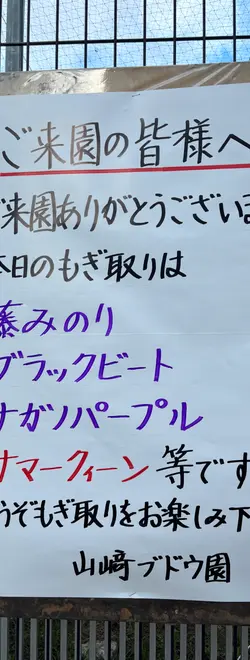 ご来園の皆様へ
ご来園ありがとうございま
本日のもぎ取りは
藤みのり
ブラックビート
ナガノパープル
サマークィーン 等です
うぞもぎ取りをお楽しみ下
山﨑ブドウ園